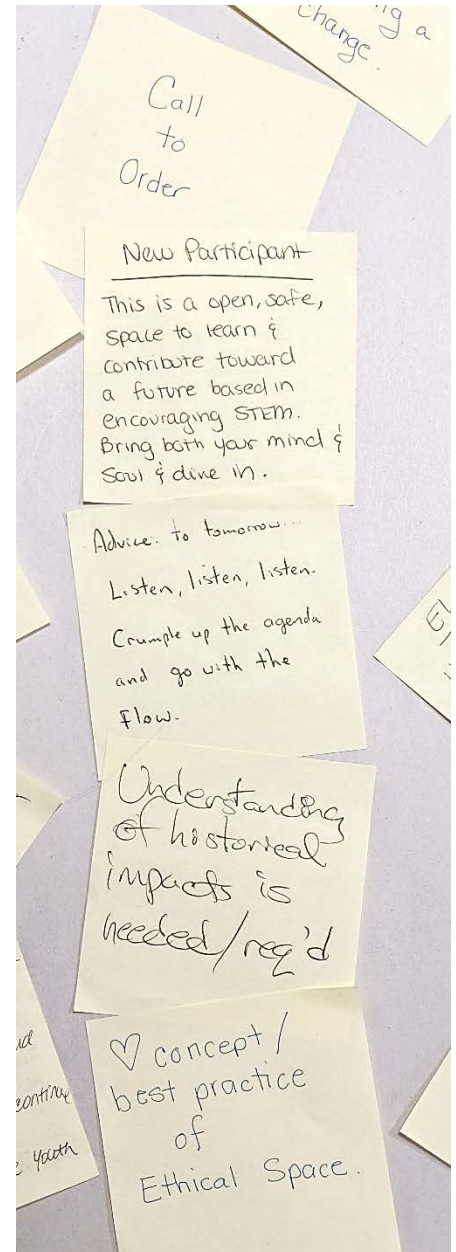 ng a
change.
Call
to
Order
New Participant
This is a open, safe,
space to learn &
contribute toward
a future based in
encouraging STEM.
Bring both your mind &
Soul & dive in.
Advice: to tomorrow...
Listen, listen, listen.
Crumple up the agenda
and go with the
flow.
Understanding
of historical
impacts is
needed/req'd
♡ concept/
best practice
of
Ethical Space.
continue
youth